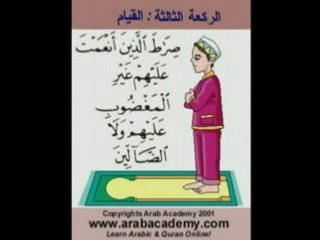 الركعة الثالثة : القيام
صِرَٰطَ ٱلَّذِينَ أَنْعَمْتَ
عَلَيْهِمْ غَيْرِ
ٱلْمَغْضُوبِ
عَلَيْهِمْ وَلَا
ٱلضَّآلِّينَ
Copyrights Arab Academy 2001
www.arabacademy.com
Learn Arabic & Quran Online!